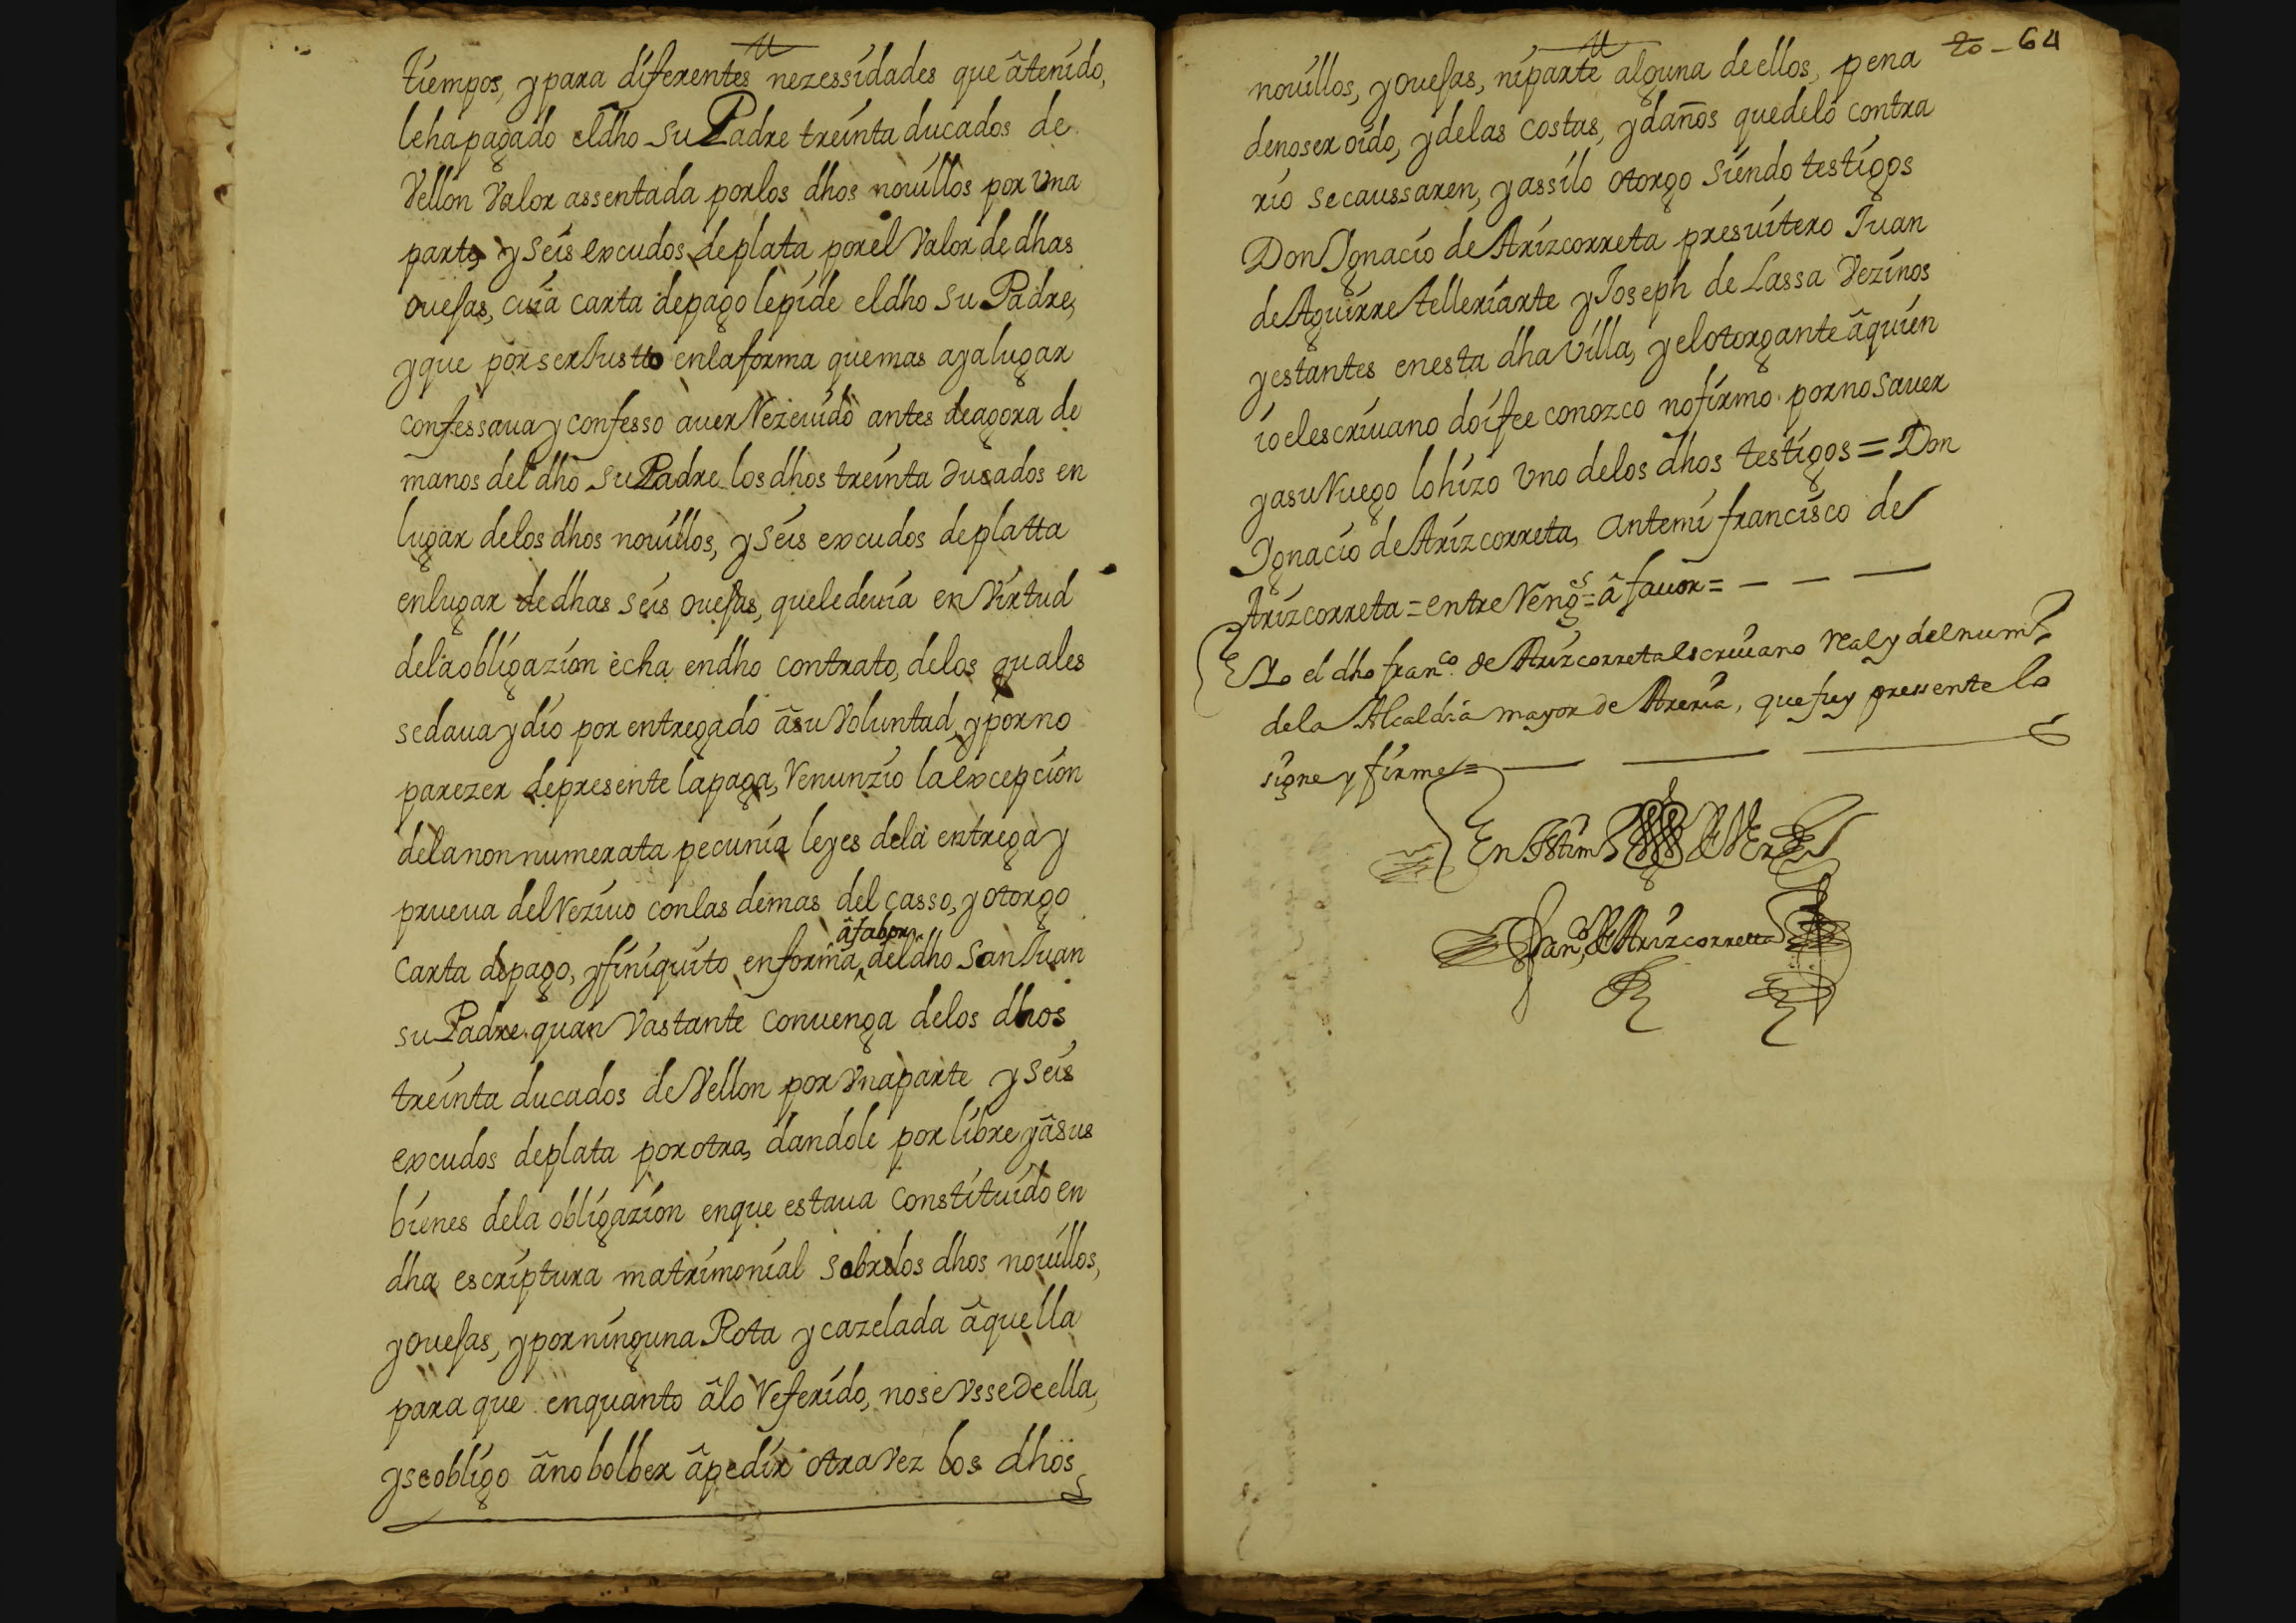 tiempos, y para diferentes nezessidades que â tenido,
le ha pagado el dho su Padre treinta ducados de
Vellon Valor assentada por los dhos nouillos por Vna
parte, y seis excudos de plata por el Valor de dhas
ouejas, cuia carta de pago le pide el dho su Padre,
y que por ser Justto en la forma que mas aya lugar
confessaua y confesso auer Rezeuido antes de agora de
manos del dho su Padre los dhos treinta Ducados en
lugar de los dhos nouillos, y seis excudos de platta
en lugar de dhas seis ouejas, que le deuia en Virtud
de la obligazion echa en dho contrato, de los quales
se daua y dio por entregado â su Voluntad, y por no
parezer de presente la paga, Renunzio la excepcion
de la non numerata pecunia leyes de la entrega y
prueua del Reziuo con las demas del casso, y otorgo
â fabor
carta de pago, y finiquito en forma, del dho San Juan
su Padre quan Vastante convenga de los dhos
treinta ducados de Vellon por Vna parte y seis
excudos de plata por otra, dandole por libre y â sus
bienes de la obligazion en que estaua constituido en
dha escriptura matrimonial sobre los dhos nouillos,
y ouejas, y por ninguna Rota y cazelada âquella
para que en quanto âlo Referido, no se Vsse De ella,
y se obligo â no bolber â pedir otra Vez los dhos
20 - 64
nouillos, y ouejas, ni parte alguna de ellos, pena
de no ser oido, y de las costas, y daños que de lo contra
rio se caussaren, y assi lo otorgo siendo testigos
Don Ignacio de Arizcorreta presuitero Juan
de Aguirre telleriarte y Joseph de Lassa Vezinos
y estantes en esta dha Villa, y el otorgante â quien
io el escriuano doi fee conozco no firmo por no sauer
y a su Ruego lo hizo Vno de los dhos testigos = Don
Ignacio de Arizcorreta, ante mi francisco de
Arizcorreta = entre Rengs = â fauor = — — —
Yo el dho franco. de Arizcorreta escriuano Real y del num
de la Alcaldia mayor de Areria, que fuy pressente lo
signe y firme =
En testim de Ver
Franco de Arizcorretta